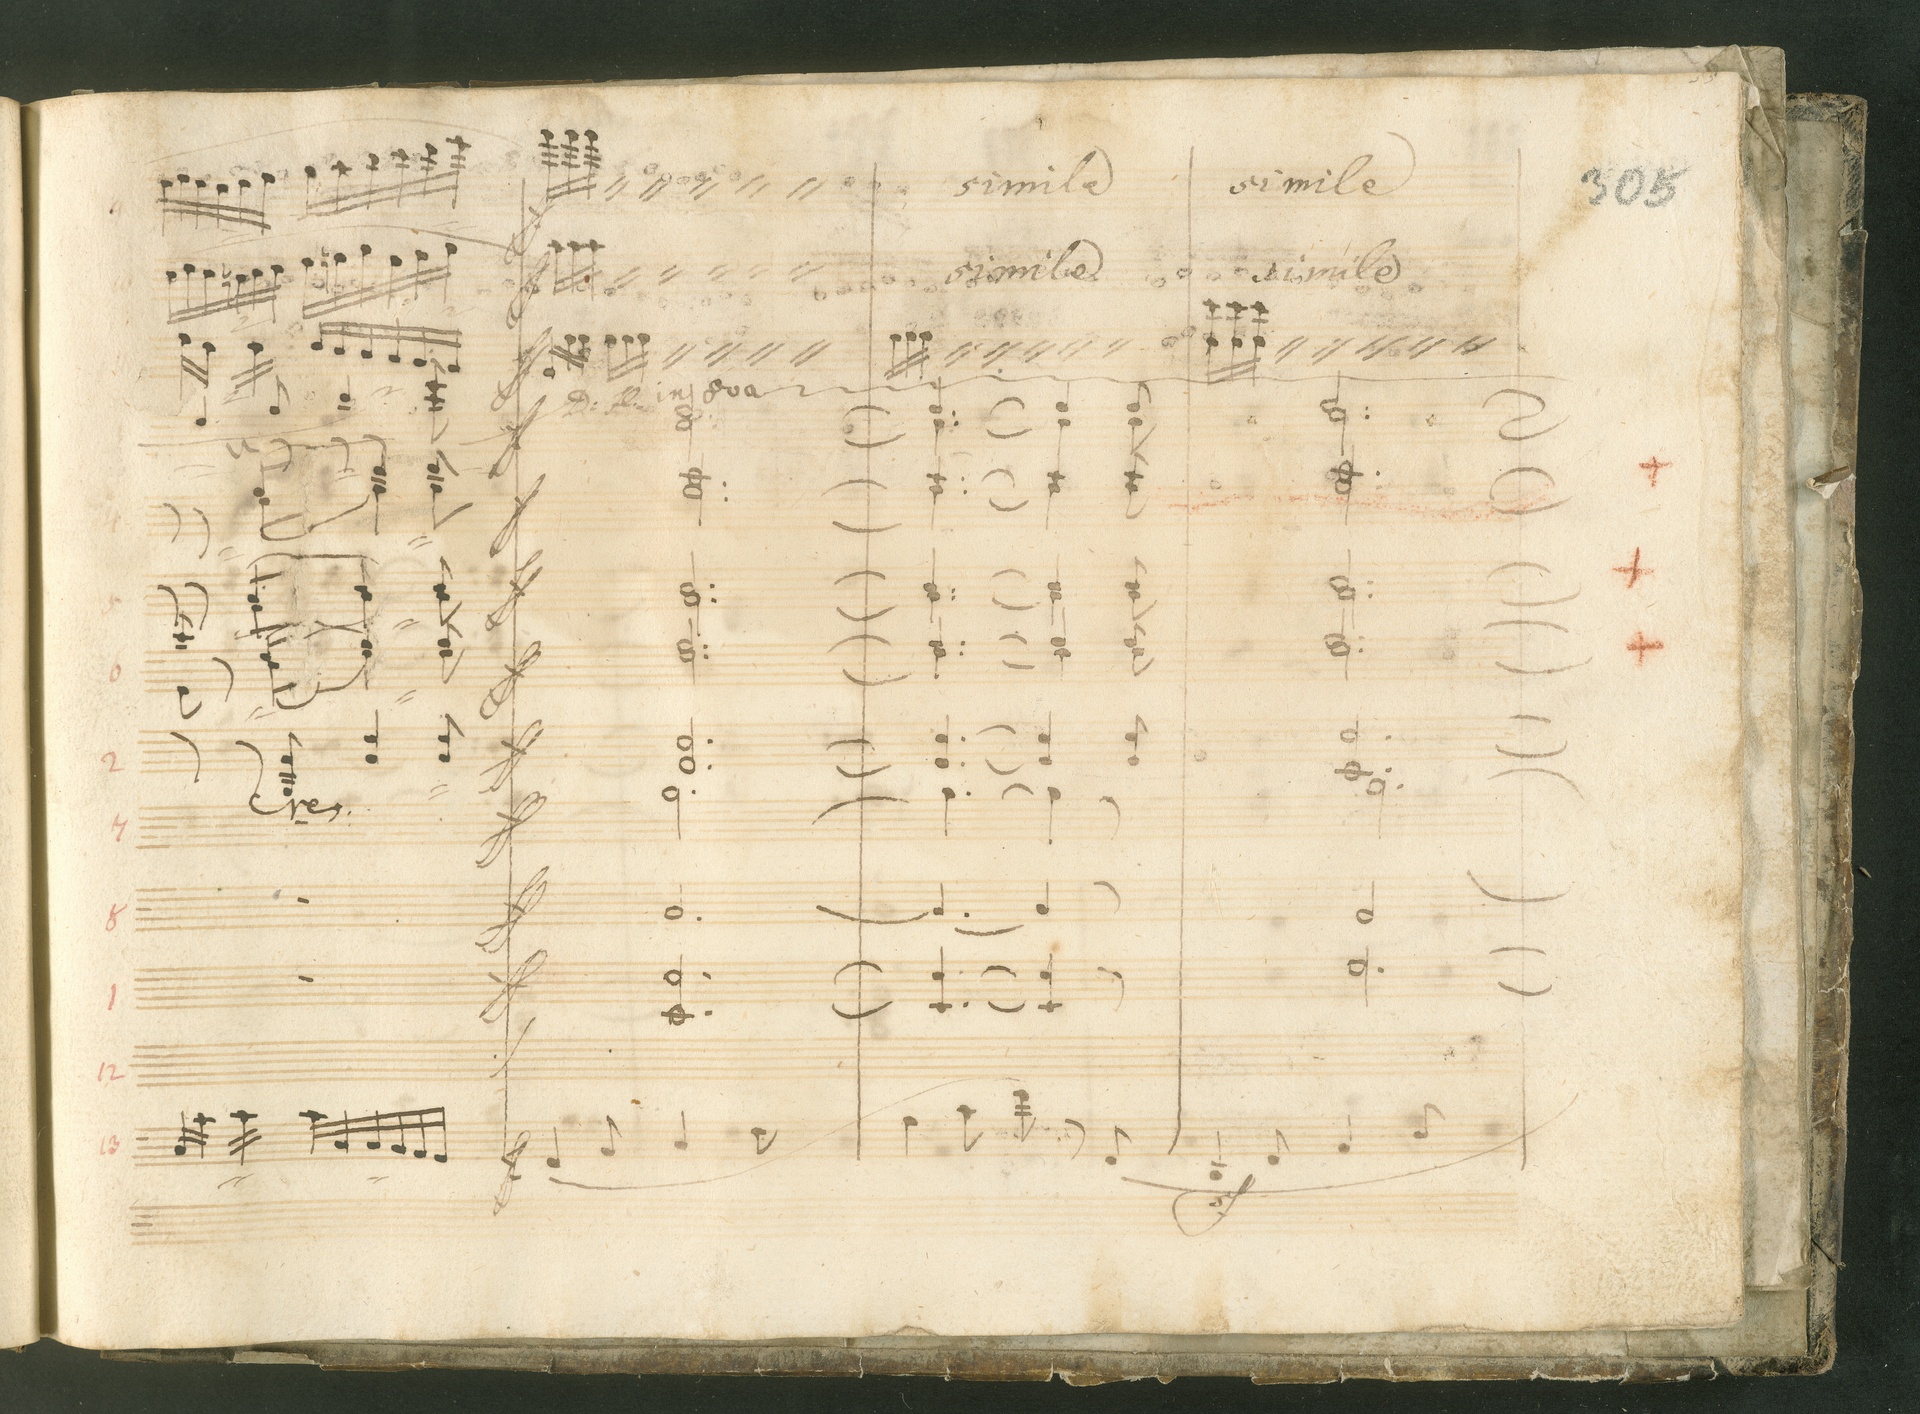 simile simile 305
simile simile
in 8va
4
5
6
2
Ves.
7
8
1
12
13